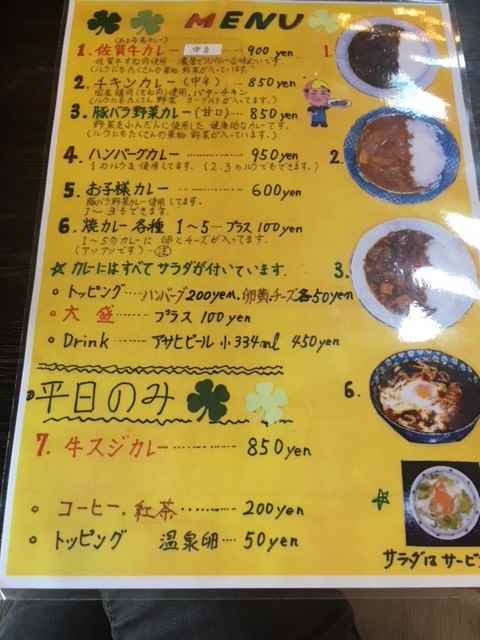 MENU
1. 佐賀牛カレー 中辛 900 yen 1.
佐賀牛すね肉使用
(ルウにもたくさんの果物 野菜が入っています。)
2. チキンカレー (中辛) 850 yen
バターチキン
(ルウにもたくさん 野菜 ヨーグルトが入ってます。)
3. 豚バラ野菜カレー (甘口) 850 yen
野菜をふんだんに使用した 健康的なカレーです。
(ルウにもたくさんの果物 野菜が入っています。)
4. ハンバーグカレー 950 yen 2.
1のルウを使用してます。 (2.3のルウでもできます。)
5. お子様カレー 600 yen
豚バラ野菜カレー使用してます。
1〜3もできます。
6. 焼カレー 各種 1〜5 プラス 100 yen
1〜5のカレーに 卵とチーズが入ってます。
(アツアツです)
☆ カレーにはすべて サラダが付いています. 3.
○ トッピング ハンバーグ200yen. 卵黄チーズ各50yen
○ 大盛 プラス 100 yen
○ Drink アサヒビール 小 334ml 450 yen
平日のみ 6.
7. 牛スジカレー 850 yen
○ コーヒー.紅茶 200 yen
○ トッピング 温泉卵 50 yen
サラダはサービ